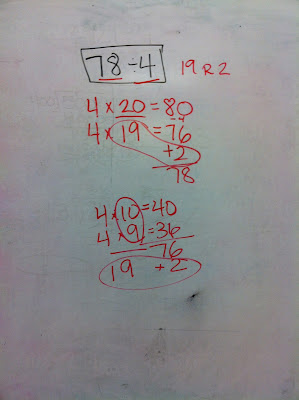 78 ÷ 4 19 R 2
4 × 20 = 80
4 × 19 = 76
+2
78
4 × 10 = 40
4 × 9 = 36
76
19 + 2